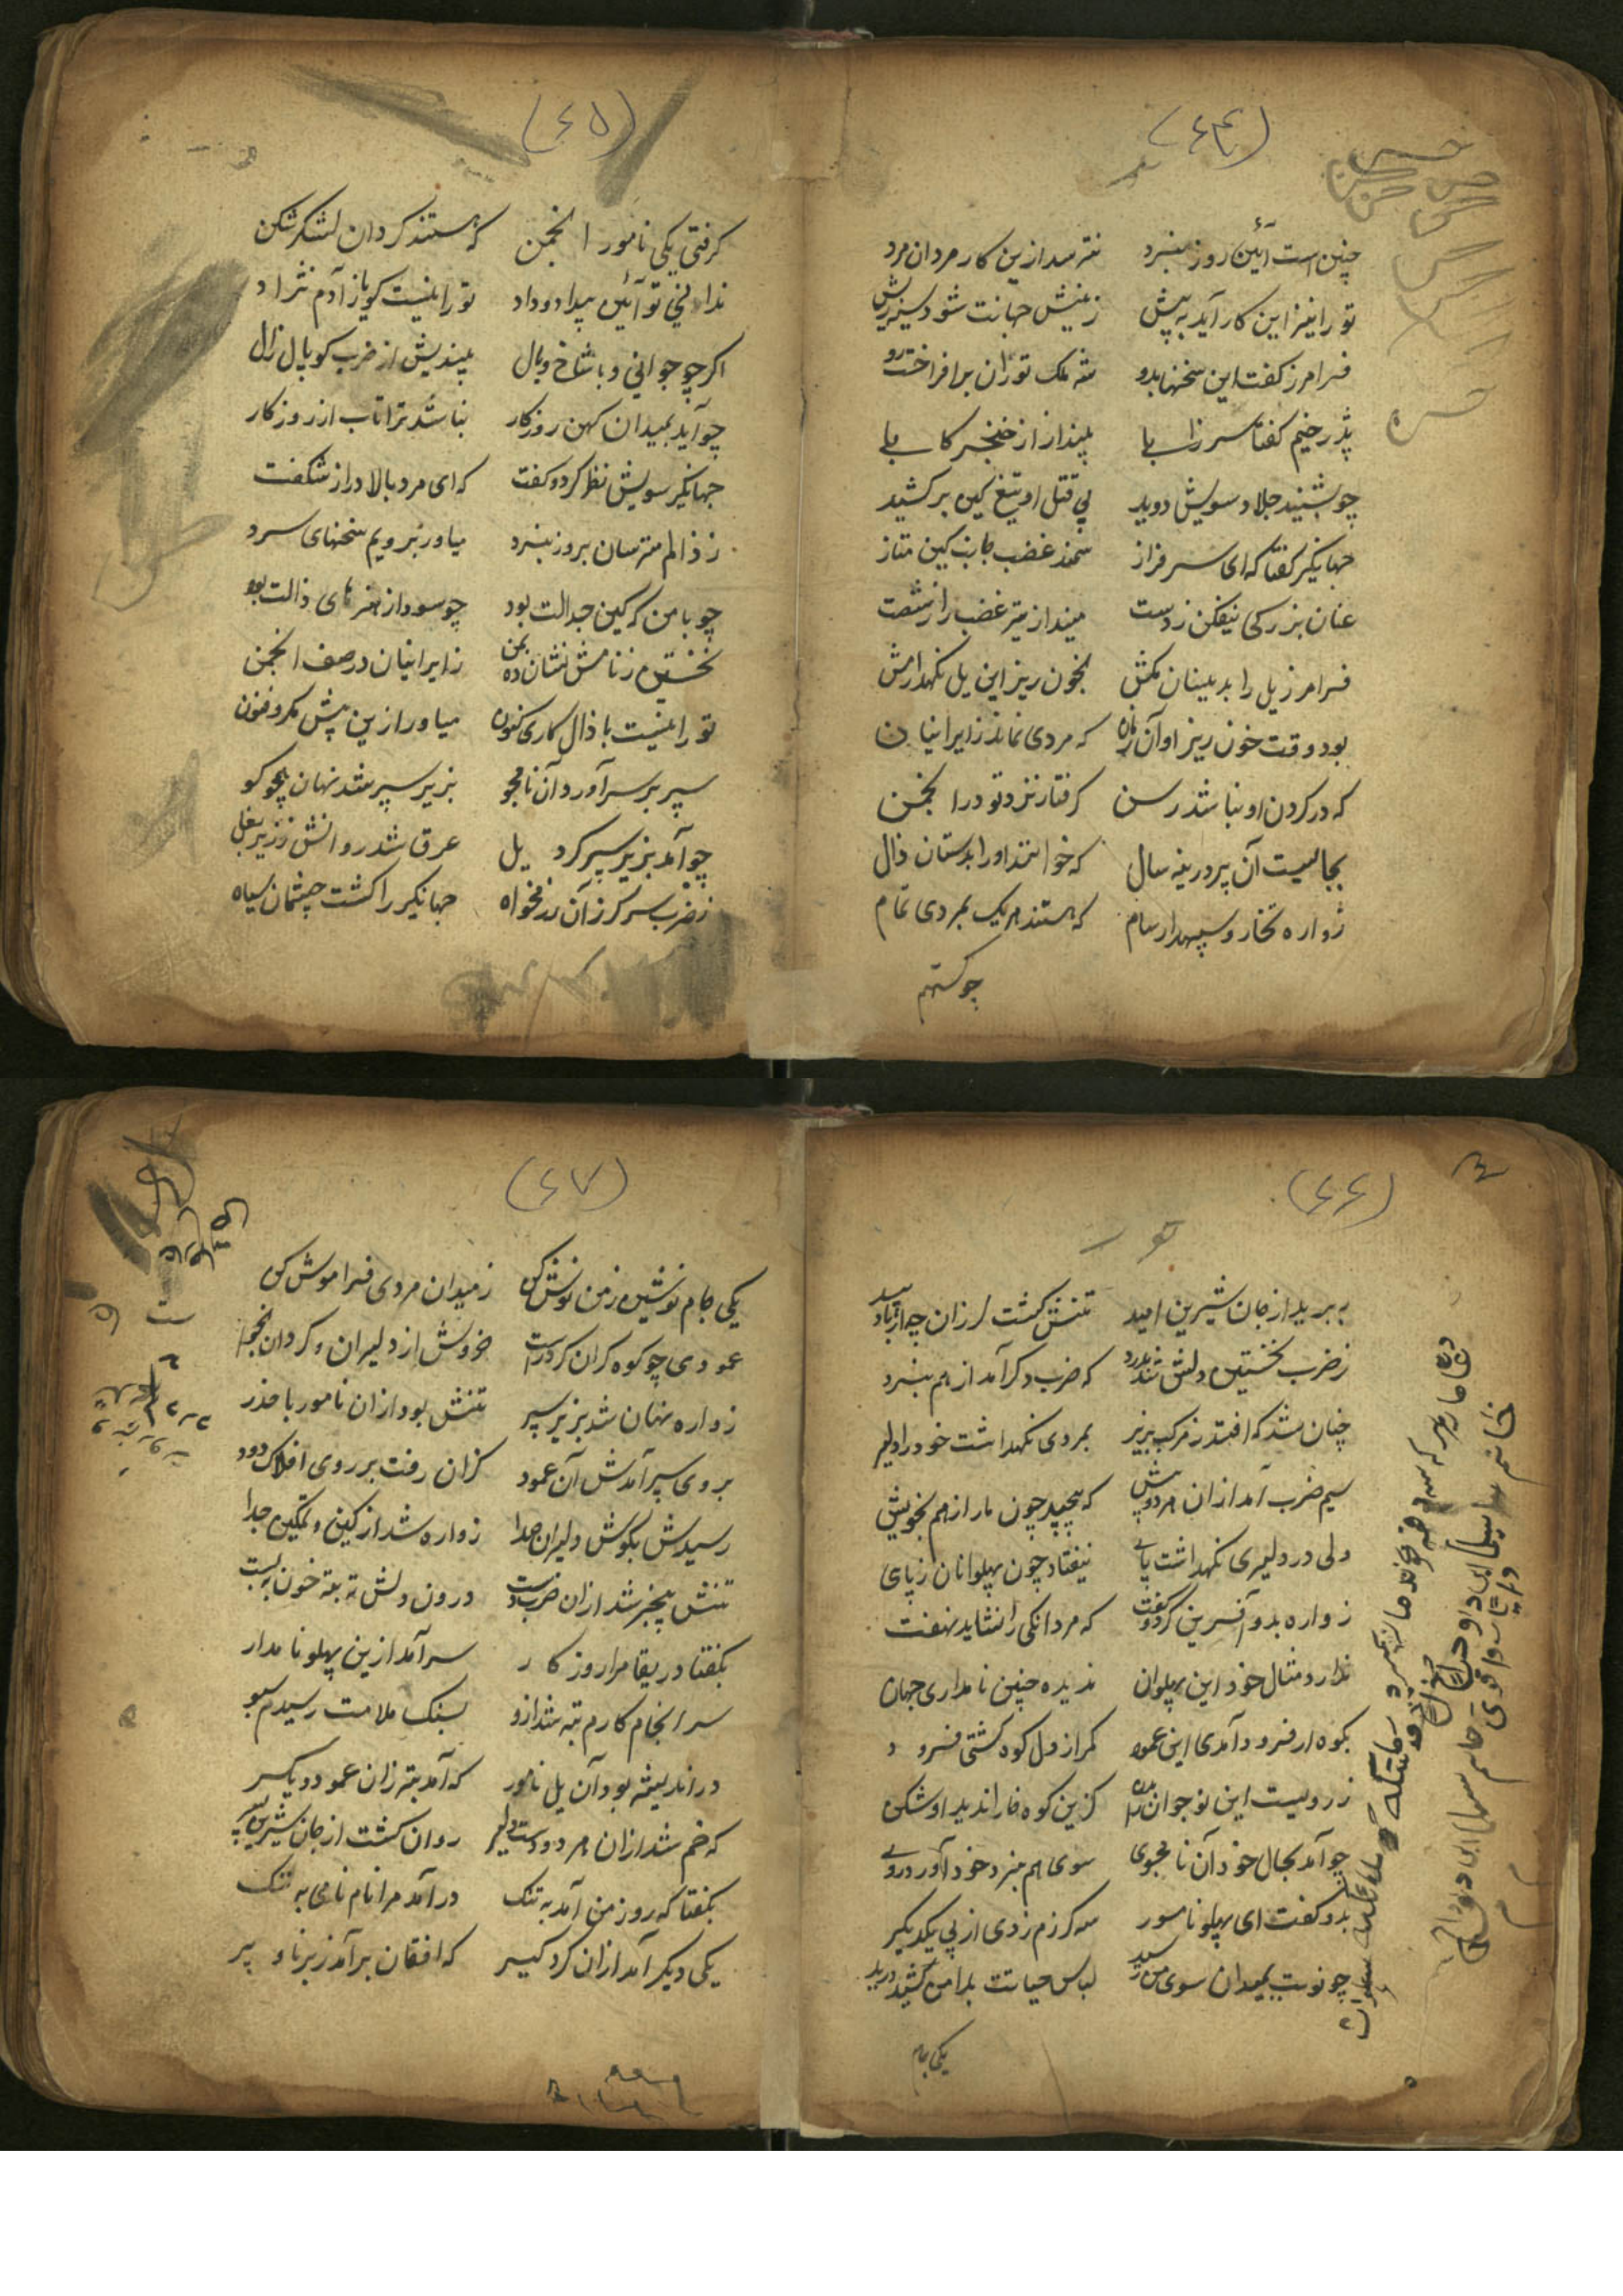 (٤٤)
چنین است آئین روز نبرد نترسد ازین کار مردان مرد
تو را نیز این کار آید به پیش ز نیش جهانت شود سینه ریش
فرامرز گفت این سخنها بدو شه ملک توران برافراخت رو
پدر خیم گفتا سر زابلی بینداز از خنجر کابلی
چو بشنید جلاد سویش دوید پی قتل او تیغ کین برکشید
جهانگیر گفتا که ای سرفراز سمند غضب جانب کین متاز
عنان بزرگی نیفکن ز دست مینداز تیر غضب را ز شصت
فرامرز یل را بدینسان مکش بخون ریز این یل نگهدار هش
بود وقت خون ریز او آن زمان که مردی نماند ز ایرانیان
که در گردن او نباشد رسن گرفتار نزد تو در انجمن
بجا ایست آن پیر دیرینه سال که خوانند او را بدستان ذال
زواره تخار و سپهدار سام که هستند هر یک بمردی تمام
چو گستهم
(٤٥)
گرفتی یکی نامور انجمن که هستند گردان لشکر شکن
ندانی تو آئین بیداد و داد تو را نیست گویا ز آدم نژاد
اگر چو جوانی و با شاخ و یال بیندیش از ضرب کوپال زال
چو آید بمیدان کهن روزگار نباشد ترا تاب از روزگار
جهانگیر سویش نظر کرد و گفت که ای مرد بالا دراز شگفت
ز ذالم مترسان بروز نبرد میاور برویم سخنهای سرد
چو با من که کین جدالت بود چو سود از هنرهای ذالت بود
نخستین ز نامش نشان ده بمن ز ایرانیان در صف انجمن
تو را نیست با ذال کاری کنون میاور ازین پیش مکر و فنون
سپر بر سر آورد آن نامجو بزیر سپر شد نهان همچو کو
چو آمد بزیر سپر گرد یل عرق شد روانش ز زیر بغل
ز ضرب سر گرز آن رزمخواه جهانگیر را گشت چشمان سیاه
(٤٦)
ببرید از جان شیرین امید تنش گشت لرزان چو از باد بید
ز ضرب نخستین دلش شد بدرد که ضرب دگر آمد از هم نبرد
چنان شد که افتد ز مرکب بزیر بمردی نگهداشت خود را دلیر
سیم ضرب آمد از آن مرد پیش که پیچید چون مار از هم بخویش
ولی در دلیری نگهداشت پای نیفتاد چون پهلوانان ز پای
زواره بدو آفرین کرد و گفت که مردانگی را نشاید نهفت
ندارد مثال خود این پهلوان ندیده چنین نامداری جهان
بکوه ار فرود آمدی این عمود کمر از دل کوه گشتی فرود
ز رویست این نوجوان را بدن کزین کوه خارا ندید او شکن
چو آمد بحال خود آن نامجوی سوی هم نبرد خود آورد روی
بدو گفت ای پهلو نامور سه گرزم زدی از پی یکدیگر
چو نوبت بمیدان سوی من رسید لباس حیاتت بدامن کشید درید
یکی جام
(٤٧)
یکی جام نوشین ز من نوش کن ز میدان مردی فراموش کن
عمودی چو کوه گران کرد راست خروش از دلیران و گردان بخواست
زواره نهان شد بزیر سپر تنش بود از آن نامور با حذر
بروی سپر آمدش آن عمود گران رفت بر روی افلاک دود
رسیدش بگوش دلیران صدا زواره شد از کین و تمکین جدا
تنش بیخبر شد از آن ضرب دست درون دلش ته به ته خون ببست
بگفتا دریغا مرا روزگار سر آمد ازین پهلو نامدار
سرانجام کارم تبه شد ازو بسنگ ملامت رسیدم سبو
در اندیشه بود آن یل نامور که آمد بتر زان عمود دیگر
که خم شد از آن هر دو دست دلیر روان گشت از جان شیرین سیر
بگفتا که روز من آمد به تنگ درآمد مرا نام نامی به ننگ
یکی دیگر آمد از آن گرد گیر که افغان برآمد ز برنا و پیر